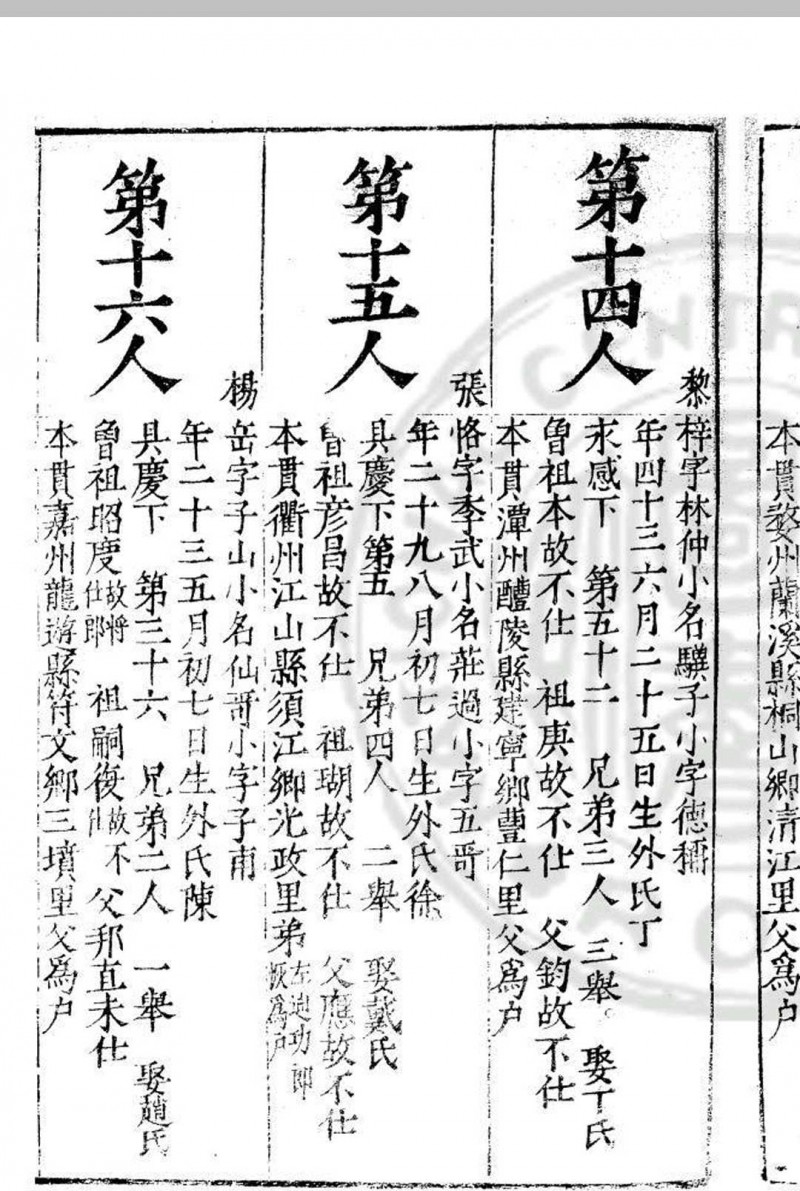 本貫婺州蘭溪縣桐山鄉清江里父爲户
第十四人
黎梓字林仲小名驥子小字德稱
年四十三六月二十五日生外氏丁
永感下 第五十二 兄弟三人 三舉 娶丁氏
曾祖本故不仕 祖庚故不仕 父鈞故不仕
本貫潭州醴陵縣建寧鄉豐仁里父爲户
第十五人
張恪字季武小名莊過小字五哥
年二十九八月初七日生外氏徐
具慶下第五 兄弟四人 二舉 娶戴氏
曾祖彦昌故不仕 祖瑚故不仕 父應故不仕
本貫衢州江山縣須江鄉光政里弟左迪功郎 爲户
第十六人
楊岳字子山小名仙哥小字子甫
年二十三五月初七日生外氏陳
具慶下 第三十六 兄弟二人 一舉 娶趙氏
曾祖昭度故將仕郎 祖嗣復故不仕 父邦直未仕
本貫嘉州龍遊縣符文鄉三墳里父爲户